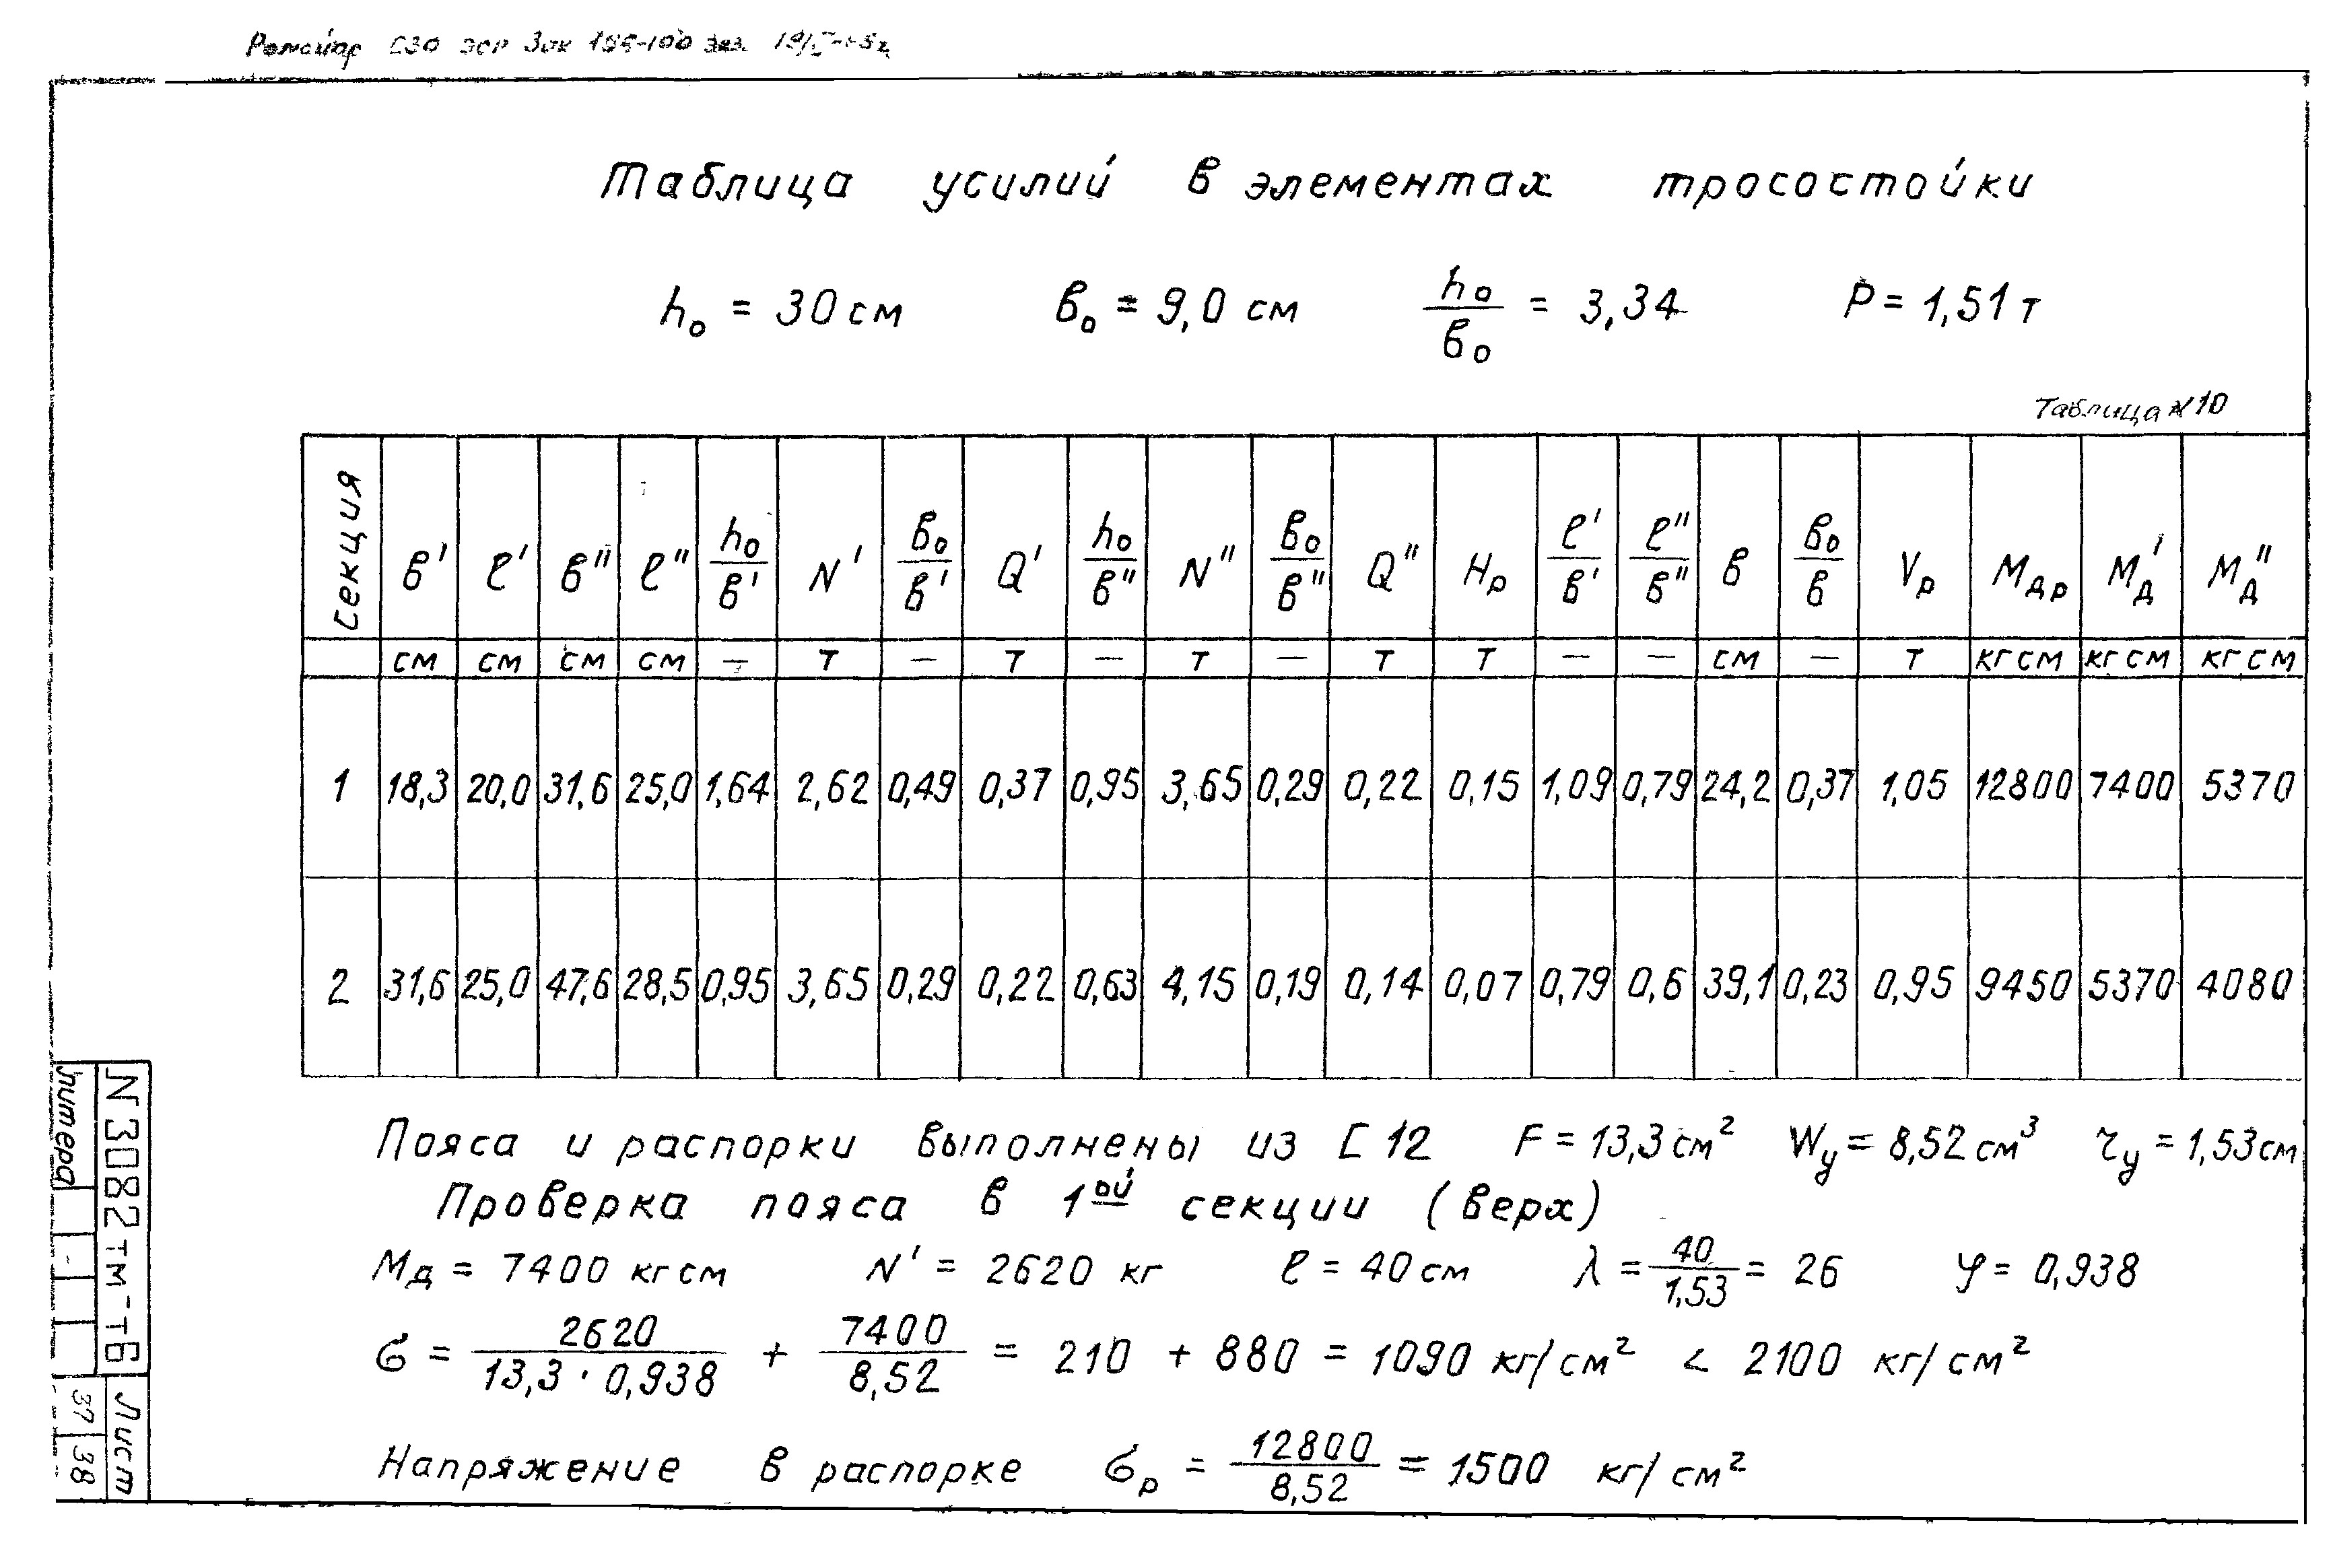 Таблица усилий в элементах тросостойки
h₀ = 30 см   в₀ = 9,0 см   h₀/в₀ = 3,34   P = 1,51 т
Таблица N 10
Секция | в' | ℓ' | в" | ℓ" | h₀/в' | N' | в₀/в' | Q' | h₀/в" | N" | в₀/в" | Q" | Hр | ℓ'/в' | ℓ"/в" | в | в₀/в | Vр | Mдр | Mд' | Mд"
см | см | см | см | — | т | — | т | — | т | — | т | т | — | — | см | — | т | кг см | кг см | кг см
1 | 18,3 | 20,0 | 31,6 | 25,0 | 1,64 | 2,62 | 0,49 | 0,37 | 0,95 | 3,65 | 0,29 | 0,22 | 0,15 | 1,09 | 0,79 | 24,2 | 0,37 | 1,05 | 12800 | 7400 | 5370
2 | 31,6 | 25,0 | 47,6 | 28,5 | 0,95 | 3,65 | 0,29 | 0,22 | 0,63 | 4,15 | 0,19 | 0,14 | 0,07 | 0,79 | 0,6 | 39,1 | 0,23 | 0,95 | 9450 | 5370 | 4080
Пояса и распорки выполнены из [ 12   F = 13,3 см²   Wу = 8,52 см³   τу = 1,53 см
Проверка пояса в 1ой секции (верх)
Mд = 7400 кг см   N' = 2620 кг   ℓ = 40 см   λ = 40/1,53 = 26   φ = 0,938
σ = 2620/(13,3 · 0,938) + 7400/8,52 = 210 + 880 = 1090 кг/см² < 2100 кг/см²
Напряжение в распорке   σр = 12800/8,52 = 1500 кг/см²
N 3082тм-т6
Литера
Лист
37 | 38